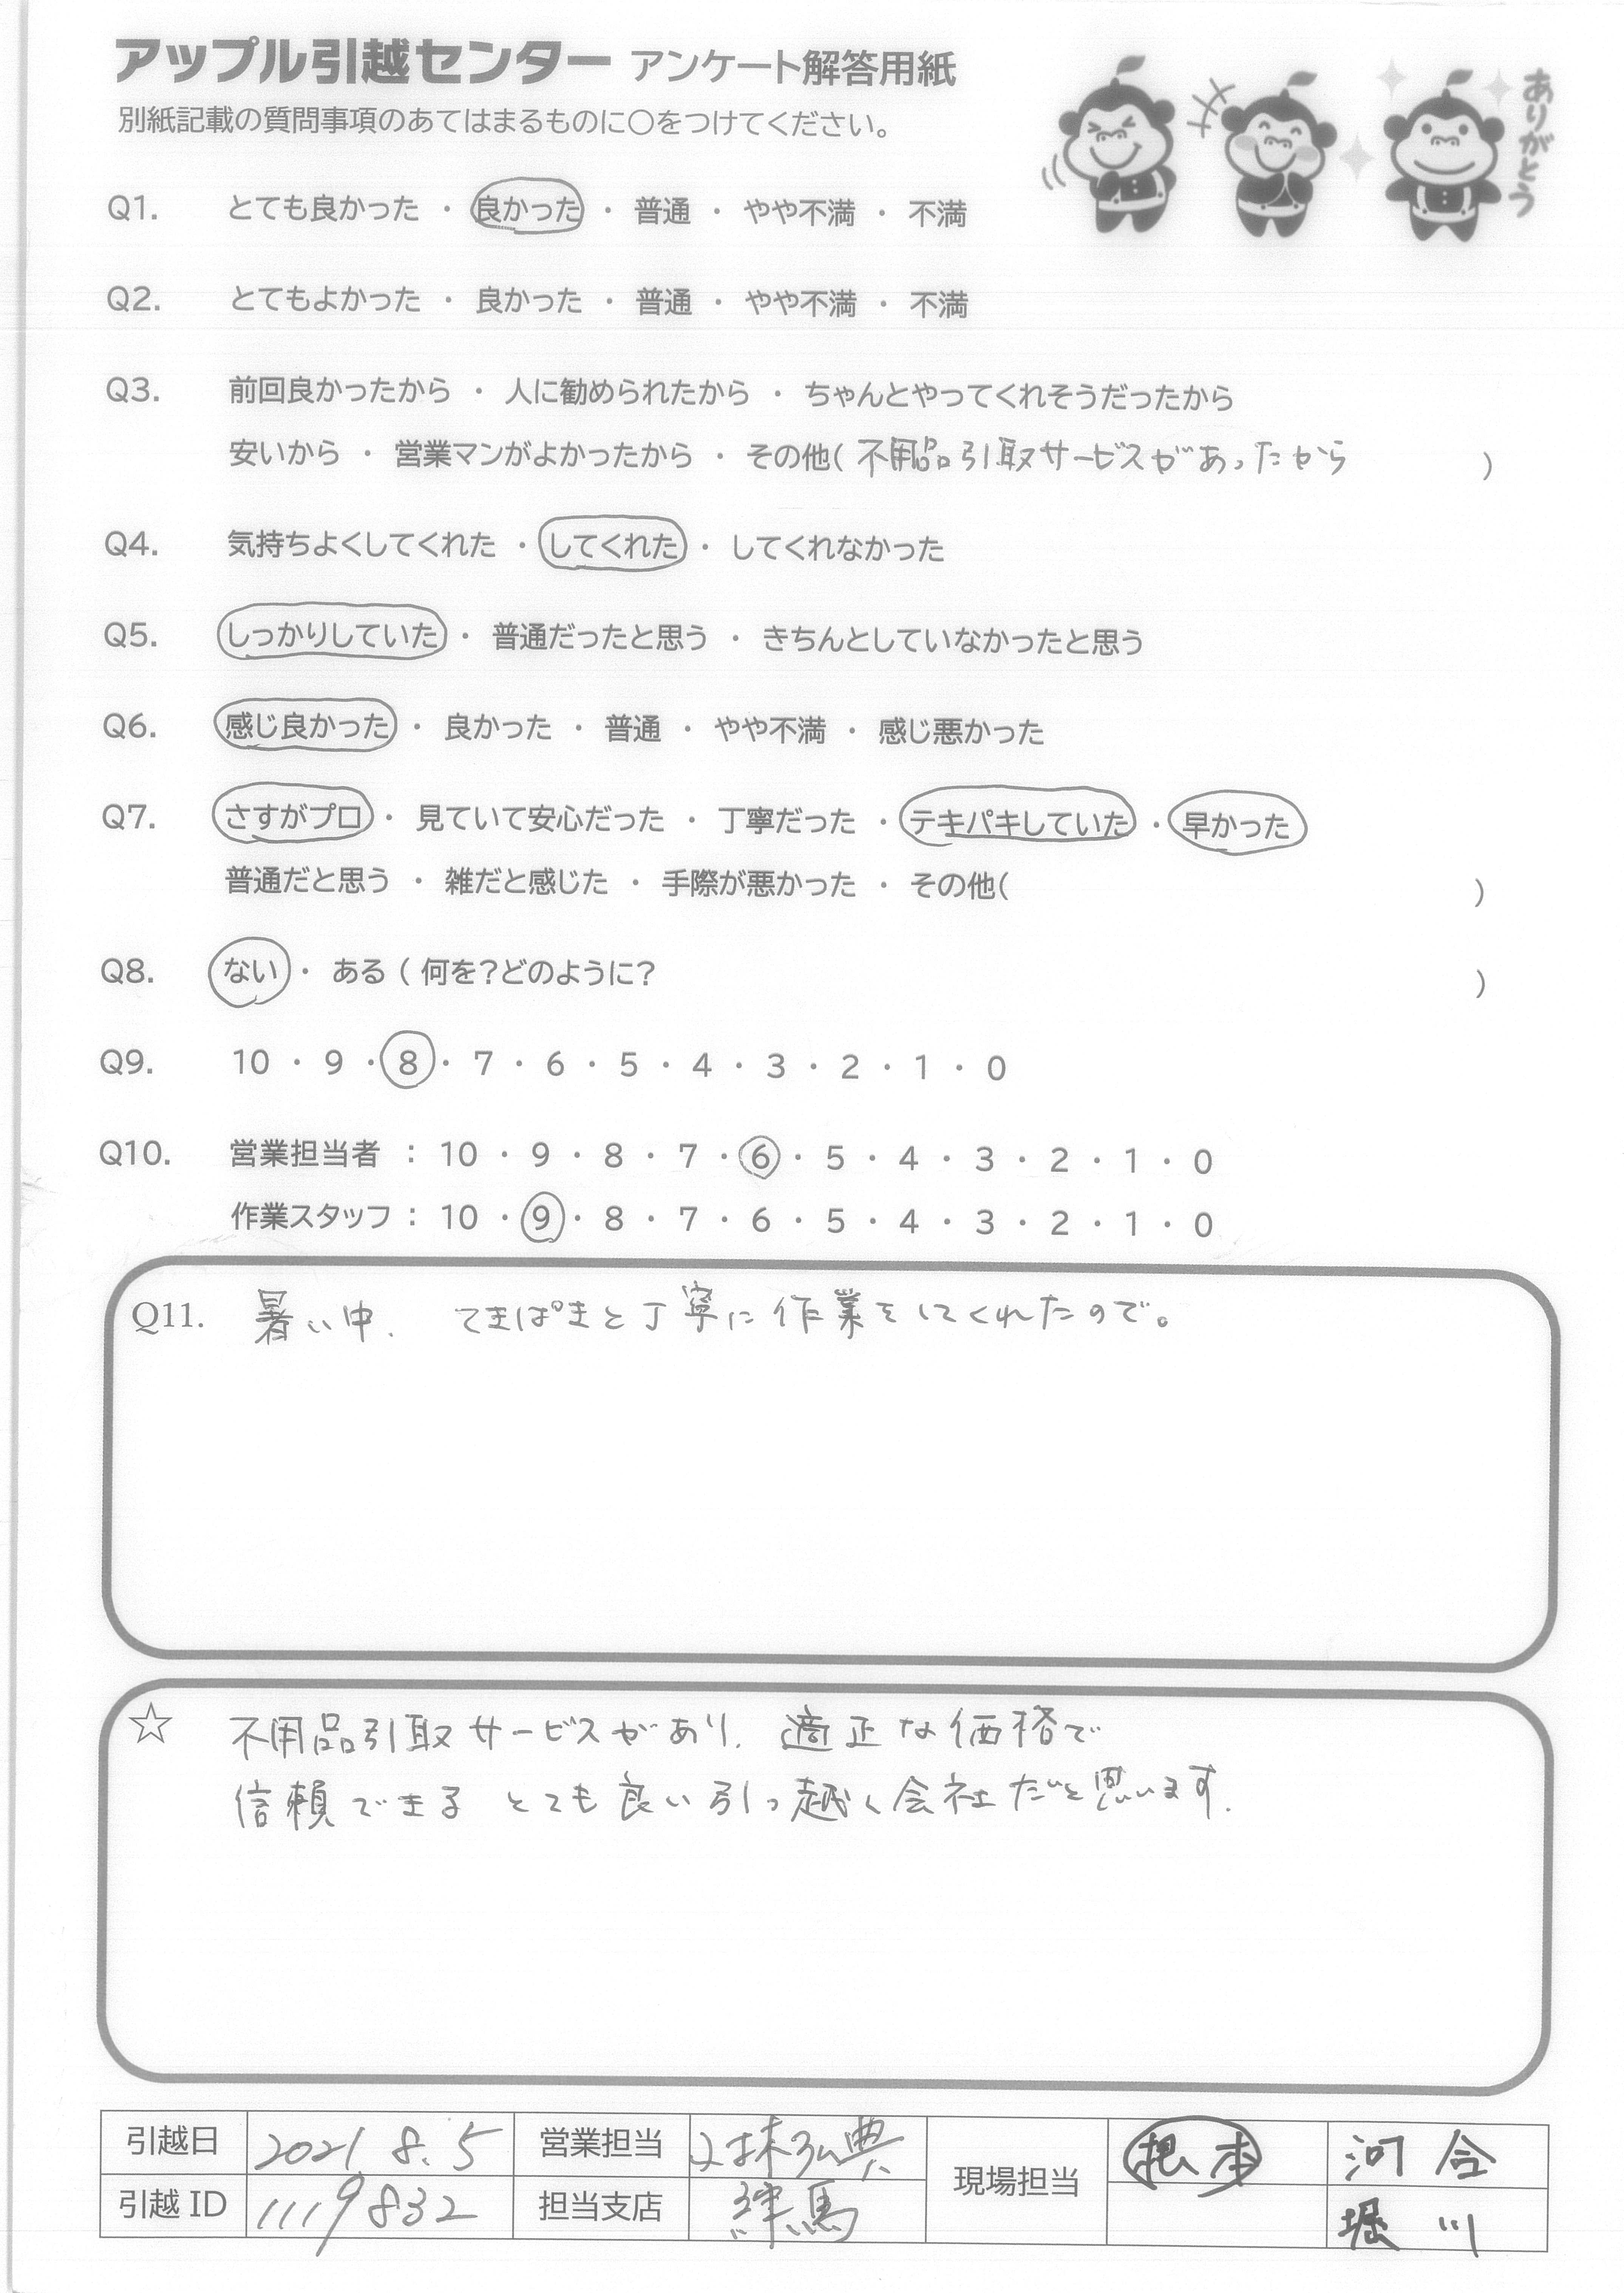 アップル引越センター アンケート解答用紙
別紙記載の質問事項のあてはまるものに○をつけてください。
ありがとう
Q1. とても良かった ・ 良かった ・ 普通 ・ やや不満 ・ 不満
Q2. とてもよかった ・ 良かった ・ 普通 ・ やや不満 ・ 不満
Q3. 前回良かったから ・ 人に勧められたから ・ ちゃんとやってくれそうだったから
安いから ・ 営業マンがよかったから ・ その他( 不用品引取サービスがあったから )
Q4. 気持ちよくしてくれた ・ してくれた ・ してくれなかった
Q5. しっかりしていた ・ 普通だったと思う ・ きちんとしていなかったと思う
Q6. 感じ良かった ・ 良かった ・ 普通 ・ やや不満 ・ 感じ悪かった
Q7. さすがプロ ・ 見ていて安心だった ・ 丁寧だった ・ テキパキしていた ・ 早かった
普通だと思う ・ 雑だと感じた ・ 手際が悪かった ・ その他( )
Q8. ない ・ ある ( 何を?どのように? )
Q9. 10 ・ 9 ・ 8 ・ 7 ・ 6 ・ 5 ・ 4 ・ 3 ・ 2 ・ 1 ・ 0
Q10. 営業担当者 : 10 ・ 9 ・ 8 ・ 7 ・ 6 ・ 5 ・ 4 ・ 3 ・ 2 ・ 1 ・ 0
作業スタッフ : 10 ・ 9 ・ 8 ・ 7 ・ 6 ・ 5 ・ 4 ・ 3 ・ 2 ・ 1 ・ 0
Q11. 暑い中、てきぱきと丁寧に作業をしてくれたので。
☆ 不用品引取サービスがあり、適正な価格で
信頼できる とても良い引っ越く会社だと思います.
引越日 2021.8.5 営業担当 現場担当 根本 河合
引越 ID 1119832 担当支店 練馬 堀川